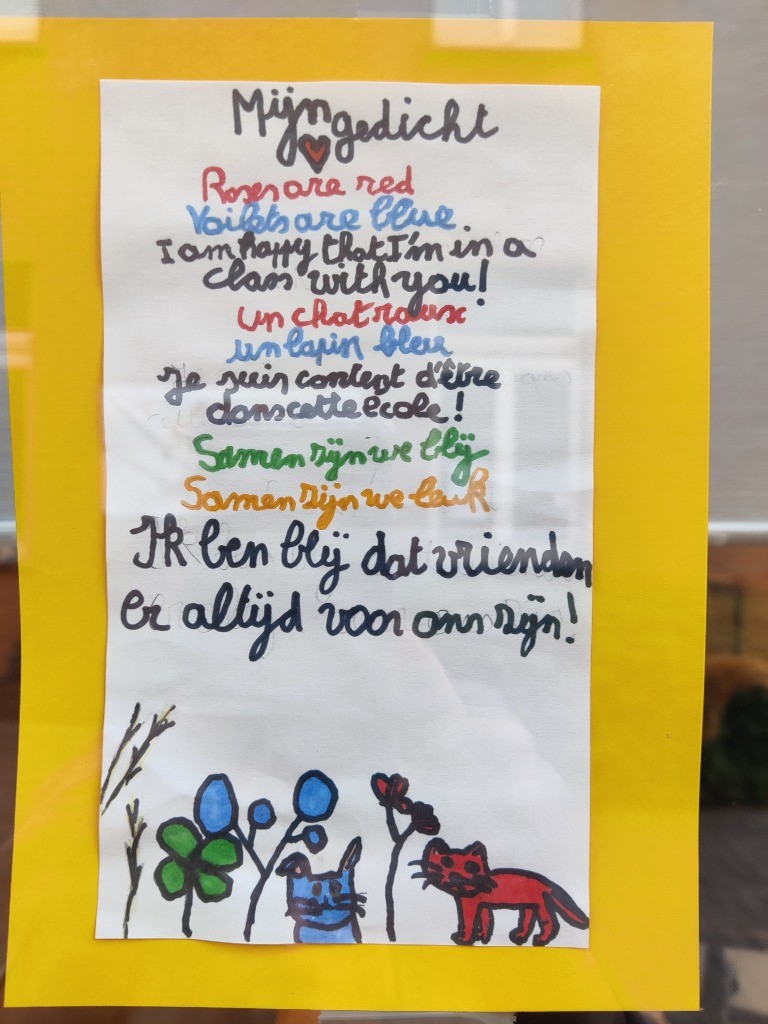 Mijn gedicht
Roses are red
Voilets are blue.
I am happy that I'm in a
class with you!
un chat roux
un lapin bleu
je suis content d'être
dans cette école!
Samen zijn we blij
Samen zijn we leuk
Ik ben blij dat vrienden
er altijd voor ons zijn!